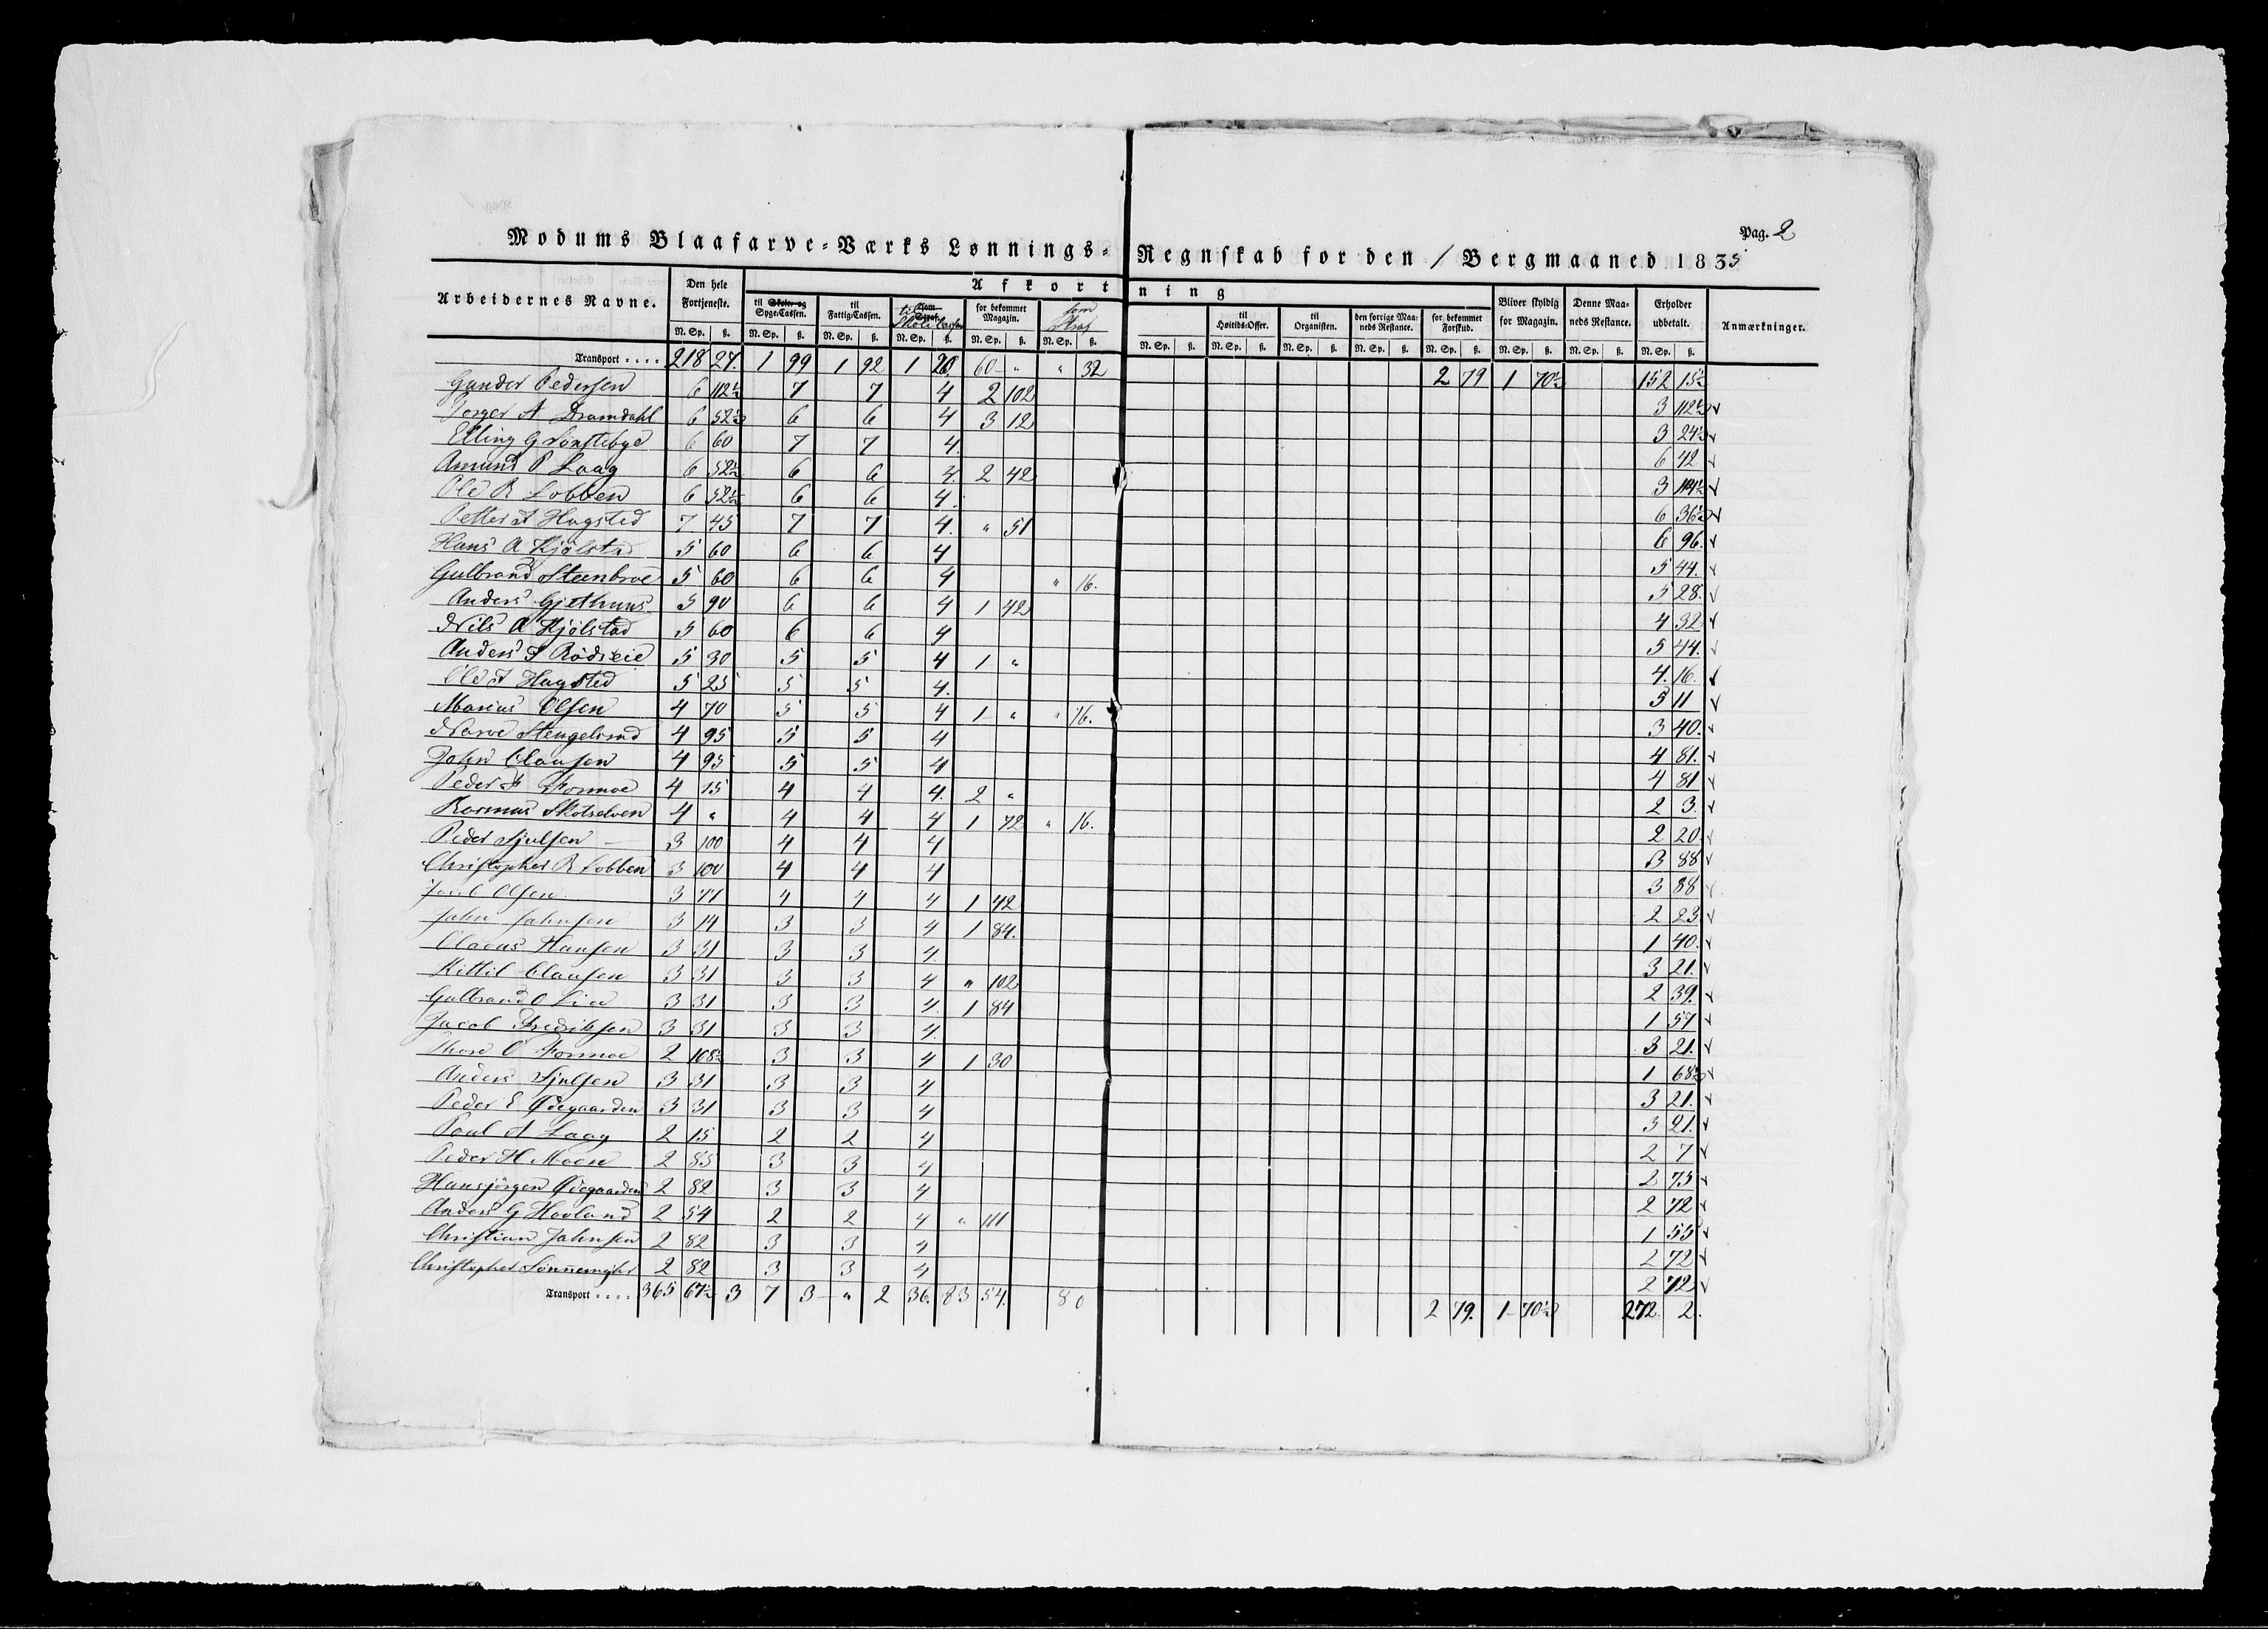 Pag. 2
Modums Blaafarve-Værks Lønnings-Regnskab for den / Bergmaaned 1835
Arbeidernes Navne. | Den hele Fortjeneste. | Afkortning | Bliver skyldig for Magazin. | Denne Maaneds Restance. | Erholder udbetalt. | Anmærkninger.
til Skole- og Syge-Cassen. | til Fattig-Cassen. | til Skole Cassen | for bekommet Magazin. | som Straf | til Høitids-Offer. | til Organisten. | den forrige Maaneds Restance. | for bekommet Forskud.
N. Sp. ß. | N. Sp. ß. | N. Sp. ß. | N. Sp. ß. | N. Sp. ß. | N. Sp. ß. | N. Sp. ß. | N. Sp. ß. | N. Sp. ß. | N. Sp. ß. | N. Sp. ß. | N. Sp. ß. | N. Sp. ß. | N. Sp. ß.
Transport .... 218 27. 1 99 1 92 1 20. 60 - " " 32 2 79 1 70½ 152 15½
Gunder Pedersen 6 112½ 7 7 4 2 102 3 112½ √
Torger A Dramdahl 6 52½ 6 6 4 3 12 3 24½ √
Elling G Lonstebye 6 60 7 7 4. 6 42 √
Amund P Laag 6 52½ 6 6 4. 2 42 3 114½ √
Ole R Lobben 6 52½ 6 6 4. 6 36½ √
Petter A Hagsted 7 45 7 7 4. " 51 6 96. √
Hans A Kjølstad 5 60 6 6 4 5 44. √
Gulbrand Steenbroe 5 60 6 6 4 " 16. 5 28. √
Anders Gjethuus 5 90 6 6 4 1 42 4 32 √
Nils A Kjølstad 5 60 6 6 4 5 44. √
Anders P Rødseie 5 30 5 5 4 1 " 4. 16. √
Ole A Hagsted 5 25 5 5 4. 5 11 √
Marius Olsen 4 70 5 5 4 1 - " " 16. 3 40. √
Narve Stengelsrud 4 95 5 5 4 4 81. √
John Clausen 4 95 5 5 4 4 81 √
Peder A Formoe 4 15 4 4 4. 2 " 2 3. √
Rasmus Skotselven 4 " 4 4 4 1 72 " 16. 2 20 √
Peder Sjulsen 3 100 4 4 4 3 88 √
Christopher R Lobben 3 100 4 4 4 3 88 √
Jacob Olsen 3 77 4 4 4 1 42 2 23 √
John Johnsen 3 14 3 3 4 1 84. 1 40. √
Claeus Hansen 3 31 3 3 4. 3 21. √
Kittil Clausen 3 31 3 3 4 " 102 2 39. √
Gulbrand O Lie 3 31 3 3 4. 1 84 1 57 √
Jacob Fredriksen 3 31 3 3 4. 3 21. √
Thore O Formoe 2 108½ 3 3 4 1 30 1 68½ √
Anders Sjulsen 3 31 3 3 4 3 21. √
Peder E Ødegaarden 3 31 3 3 4 3 21. √
Poul A Laag 2 15 2 2 4 2 7 √
Peder H Moen 2 85 3 3 4 2 75 √
Hansjørgen Ødegaarden 2 82 3 3 4 2 72 √
Anders G Hovland 2 54 2 2 4 " 111 1 55 √
Christian Johnsen 2 82 3 3 4 2 72 √
Christopher Sønnemyhr 2 82 3 3 4 2 72 √
Transport .... 365 67½ 3 7 3 - " 2 36. 83 54. 80 2 79. 1 - 70½ 272. 2.